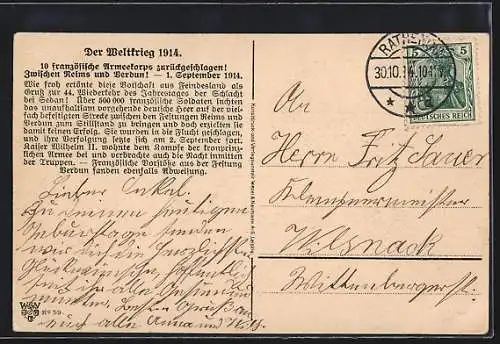 Der Weltkrieg 1914.
10 französische Armeekorps zurückgeschlagen!
Zwischen Reims und Verdun! — 1. September 1914.
Wie froh ertönte diese Botschaft aus Feindesland als
Gruß zur 44. Wiederkehr des Jahrestages der Schlacht
bei Sedan! Über 500 000 französische Soldaten suchten
das unaufhaltsam vorgehende deutsche Heer auf der viel-
fach befestigten Strecke zwischen den Festungen Reims und
Verdun zum Stillstand zu bringen und doch hatten sie
damit keinen Erfolg. Sie wurden in die Flucht geschlagen,
und ihre Verfolgung setzte sich am 2. September fort.
Kaiser Wilhelm II. wohnte dem Kampfe der kronprinz-
lichen Armee bei und verbrachte auch die Nacht inmitten
der Truppen. — Französische Vorstöße aus der Festung
Verdun fanden ebenfalls Abweisung.
Lieber Onkel.
Zu deinem heutigen
Geburtstage senden
wir dir die herzlichsten
Glückwünsche, hoffentlich
seid ihr alle Gesund
Grüße
euch alle Anna und
W&S
B
No 59
RATHENOW
30.10.14.10-11
5
5
DEUTSCHES REICH
An
Herrn Fritz Sauer
Klempnermeister
Wilsnack
Wittenbergerstr.